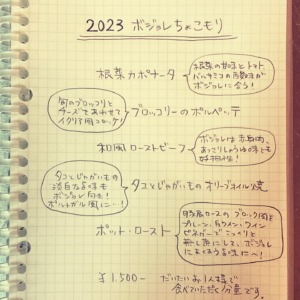 2023 ボジョレちょこもり
根菜カポナータ
根菜の甘味とトマト
バルサミコの酸味が
ボジョレに合う!
旬のブロッコリと
チーズをあわせて
イタリア風コロッケ!
ブロッコリーのポルペッテ
和風ローストビーフ
ボジョレは赤白の
あっさりしょうゆ味とも
好相性!
タコとじゃがいもの
淡白な旨味も
ボジョレ向き!
ポルトガル風に…!
タコとじゃがいもの オリーブオイル焼
ポット・ロースト
豚肩ロースの ブロック肉を
プルーン、白ワイン、ワイン
ビネガーで こっくりと
蒸し煮にして、ボジョレ
によくあう旨味に〜!
¥1,500- だいたいお1人様で
食べていただく分量です